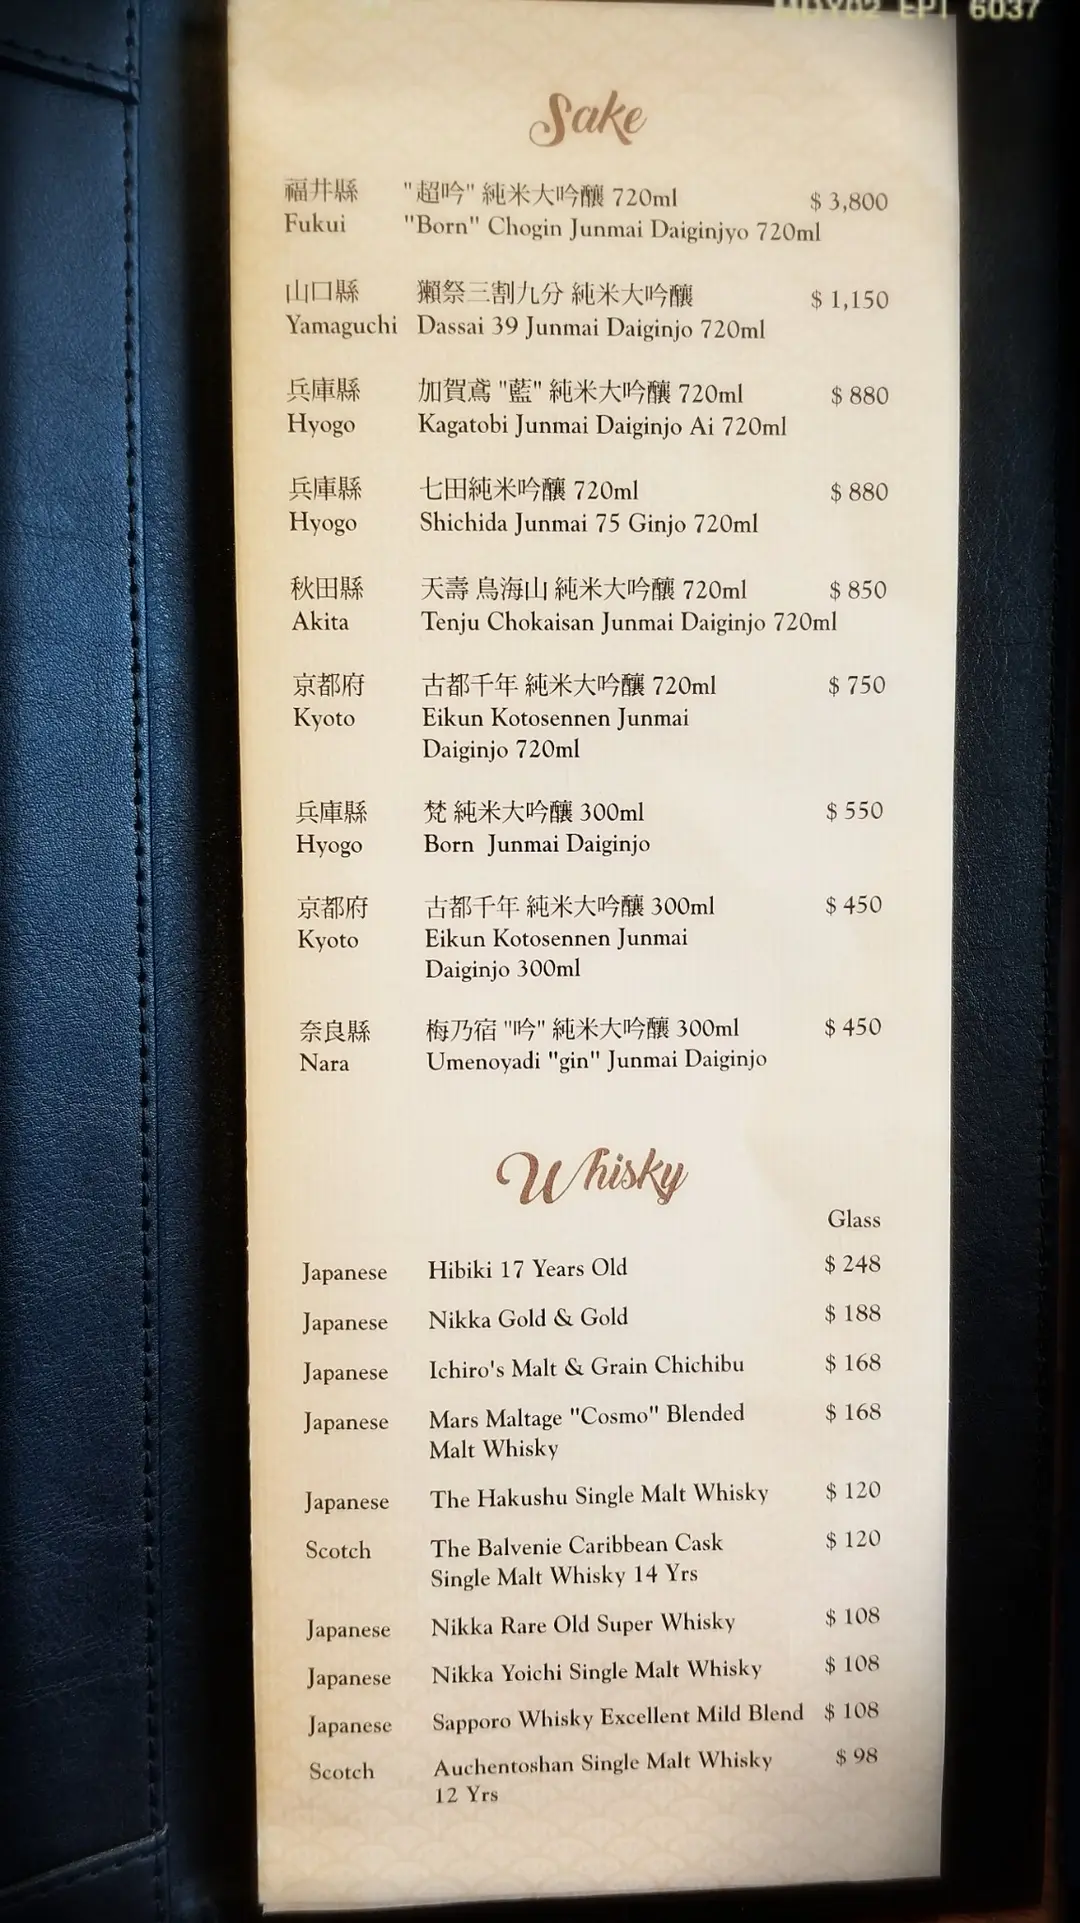 EPT 6037
Sake
福井縣 "超吟" 純米大吟釀 720ml $ 3,800
Fukui "Born" Chogin Junmai Daiginjyo 720ml
山口縣 獺祭三割九分 純米大吟釀 $ 1,150
Yamaguchi Dassai 39 Junmai Daiginjo 720ml
兵庫縣 加賀鳶 "藍" 純米大吟釀 720ml $ 880
Hyogo Kagatobi Junmai Daiginjo Ai 720ml
兵庫縣 七田純米吟釀 720ml $ 880
Hyogo Shichida Junmai 75 Ginjo 720ml
秋田縣 天壽 鳥海山 純米大吟釀 720ml $ 850
Akita Tenju Chokaisan Junmai Daiginjo 720ml
京都府 古都千年 純米大吟釀 720ml $ 750
Kyoto Eikun Kotosennen Junmai
Daiginjo 720ml
兵庫縣 梵 純米大吟釀 300ml $ 550
Hyogo Born Junmai Daiginjo
京都府 古都千年 純米大吟釀 300ml $ 450
Kyoto Eikun Kotosennen Junmai
Daiginjo 300ml
奈良縣 梅乃宿 "吟" 純米大吟釀 300ml $ 450
Nara Umenoyadi "gin" Junmai Daiginjo
Whisky
Glass
Japanese Hibiki 17 Years Old $ 248
Japanese Nikka Gold & Gold $ 188
Japanese Ichiro's Malt & Grain Chichibu $ 168
Japanese Mars Maltage "Cosmo" Blended $ 168
Malt Whisky
Japanese The Hakushu Single Malt Whisky $ 120
Scotch The Balvenie Caribbean Cask $ 120
Single Malt Whisky 14 Yrs
Japanese Nikka Rare Old Super Whisky $ 108
Japanese Nikka Yoichi Single Malt Whisky $ 108
Japanese Sapporo Whisky Excellent Mild Blend $ 108
Scotch Auchentoshan Single Malt Whisky $ 98
12 Yrs